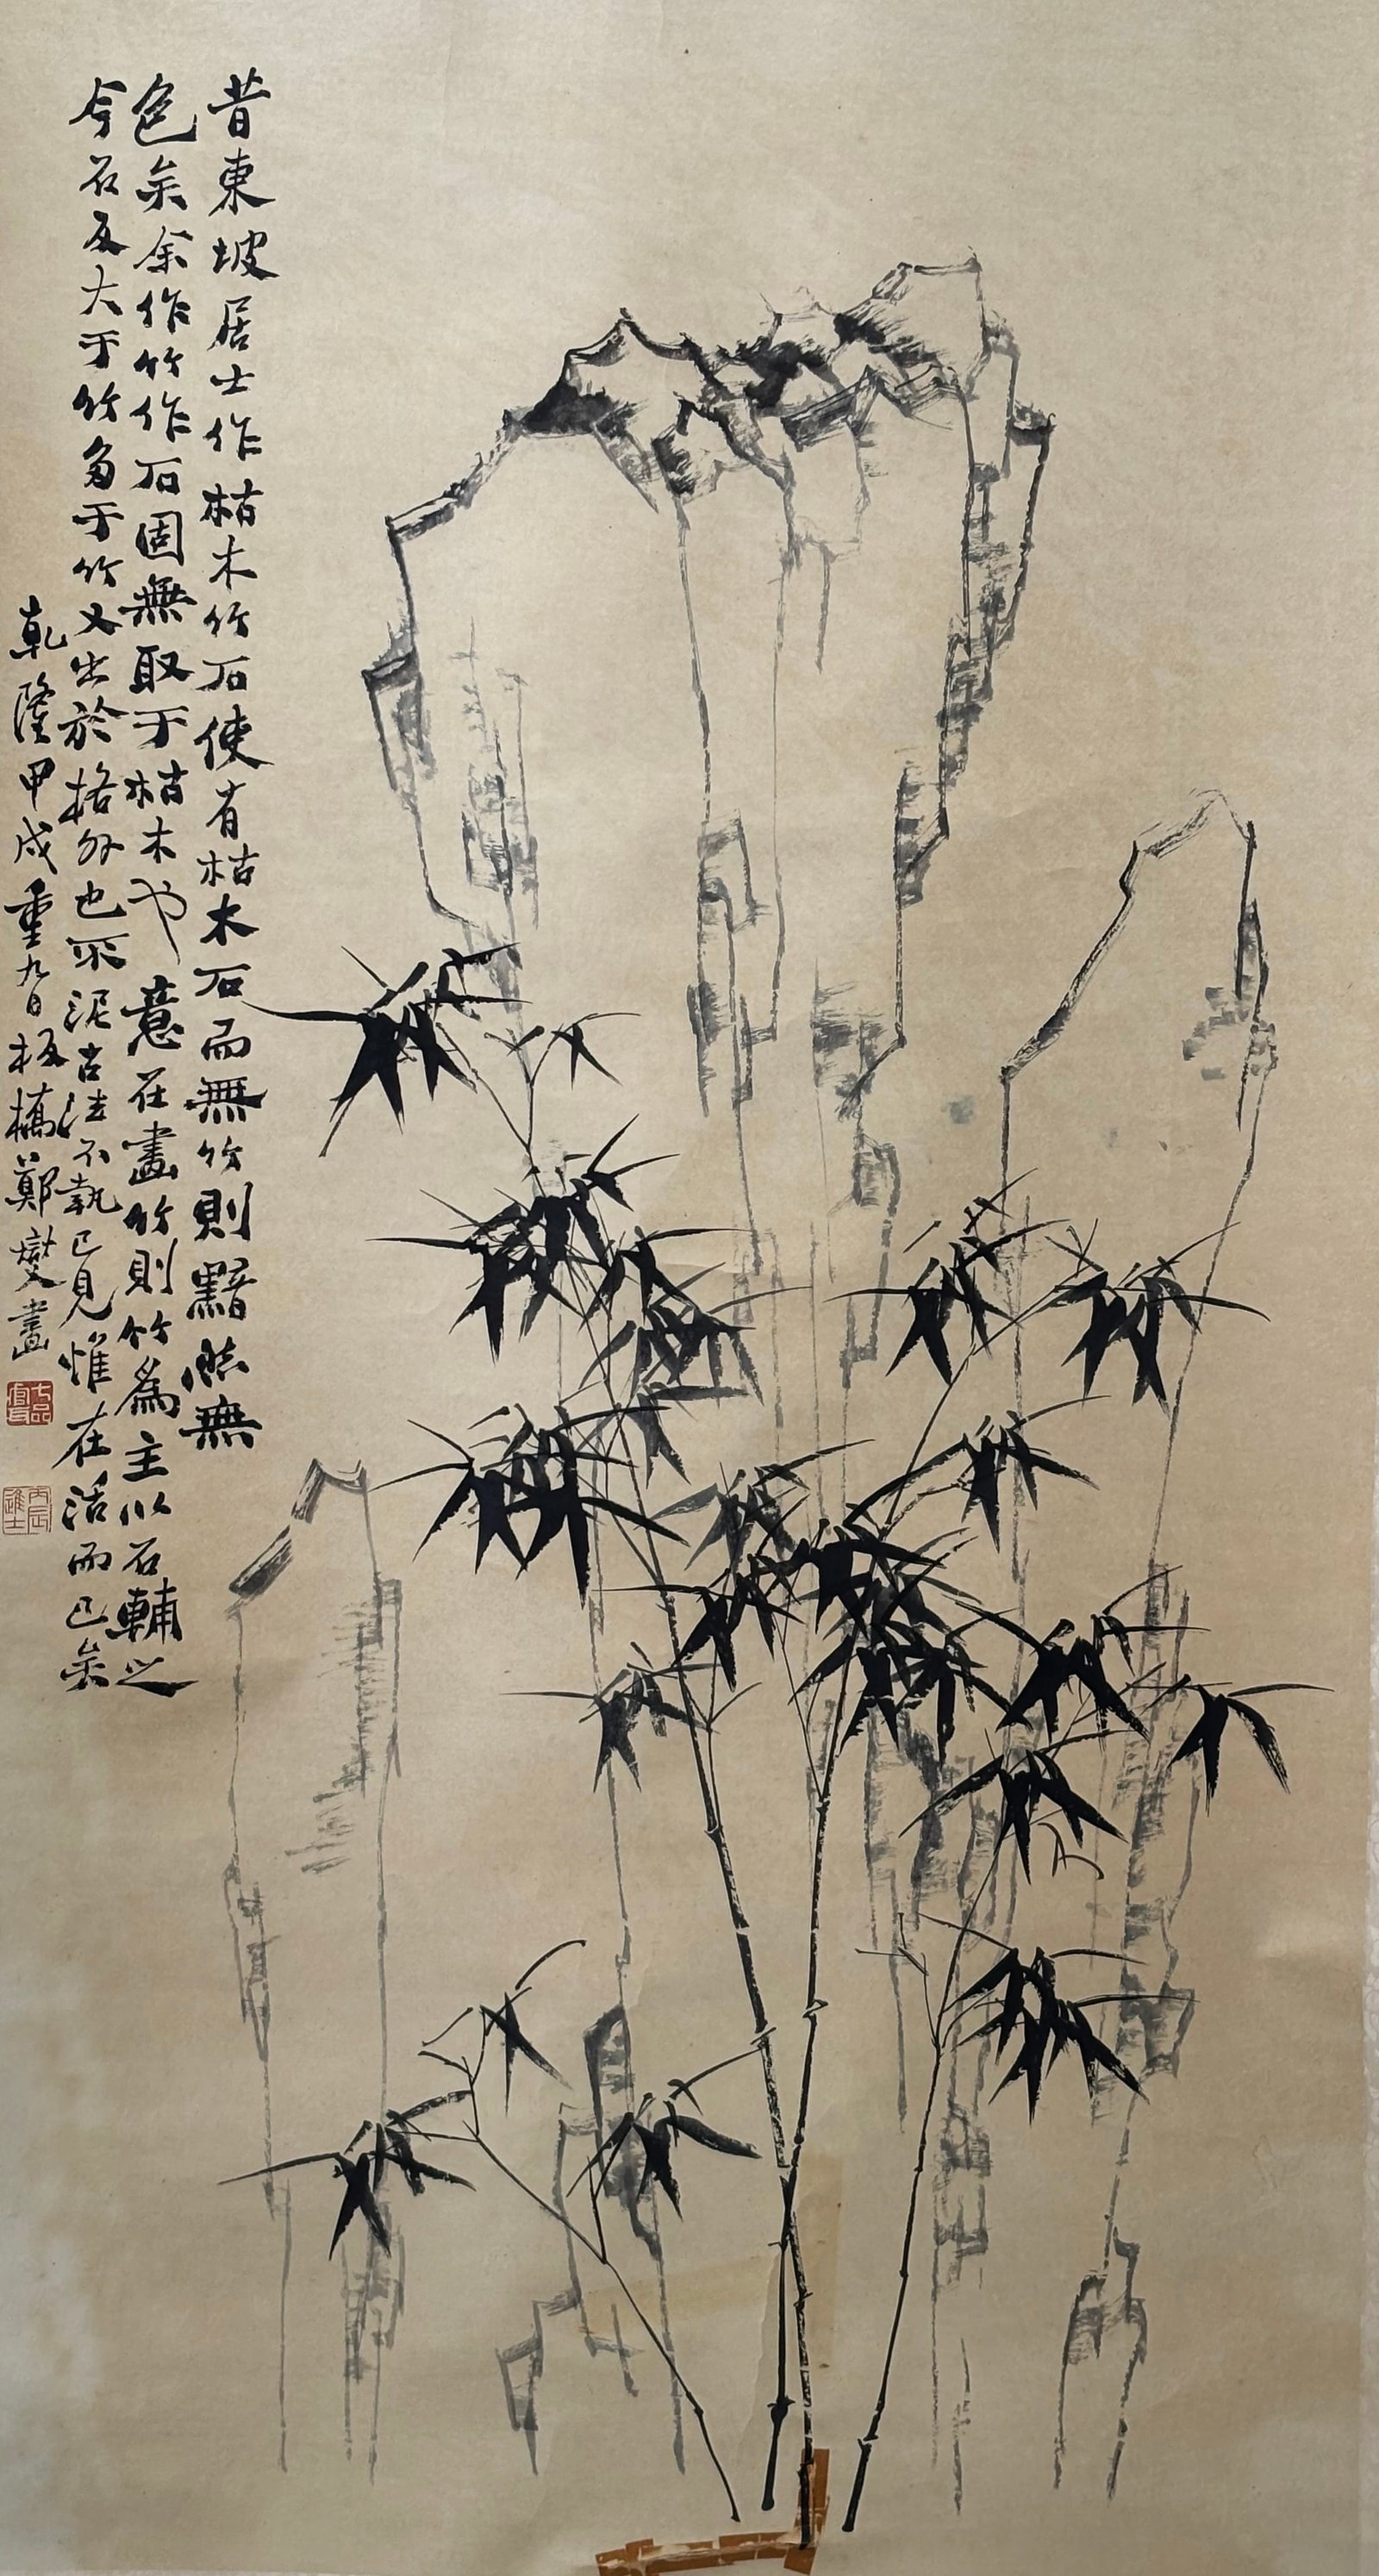 昔東坡居士作枯木竹石使有枯木石而無竹則黯然無
色矣余作竹作石固無取于枯木也意在畫竹則竹為主以石輔之
今石反大于竹多于竹又出於格外也不泥古法不執己見惟在活而已矣
乾隆甲戌重九日板橋鄭燮畫
七品官耳
丙辰進士